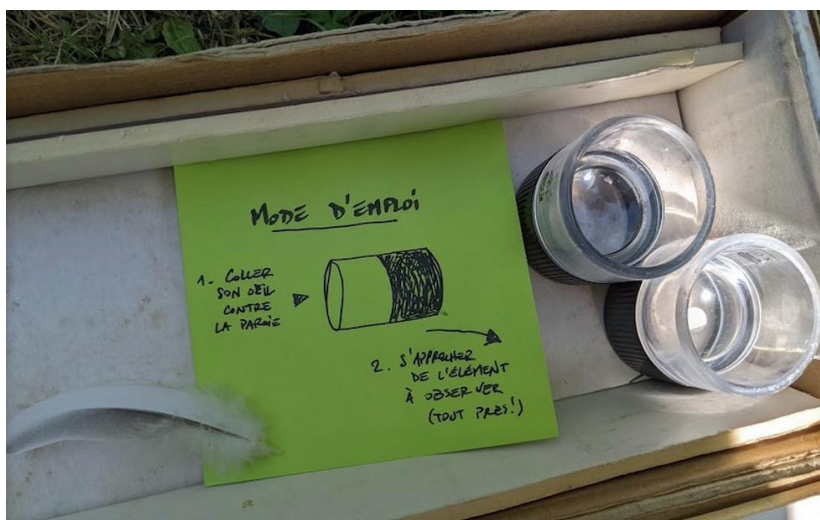 MODE D'EMPLOI
1. COLLER
SON OEIL
CONTRE
LA PAROIE
2. S'APPROCHER
DE L'ÉLÉMENT
À OBSERVER
(TOUT PRES!)